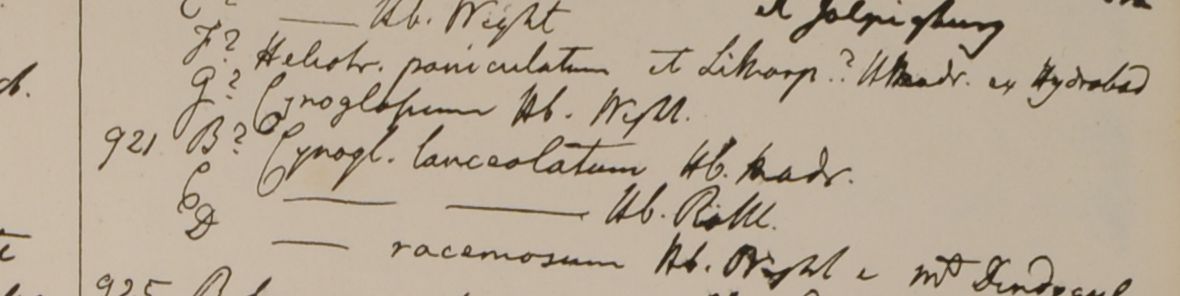 —— Hb. Wight et Jalpighury
F? Heliotr. paniculatum et Lithosp.? Hb madr. ex Hydrabad
G? Cynoglossum Hb. Wight.
921 B? Cynogl. lanceolatum Hb. madr.
C —— —— Hb. Röttl.
D —— racemosum Hb. Wight e mt Dindygul
925 B